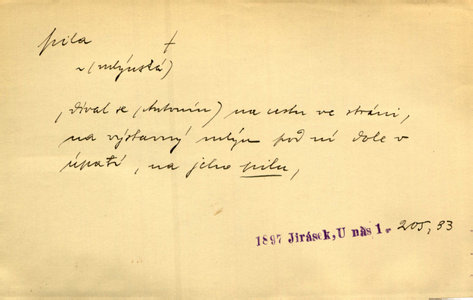 pila †
~ (mlýnská)
, díval se (Antonín) na cestu ve stráni,
na výstavný mlýn pod ní dole v
úpatí, na jeho pilu,
1897 Jirásek, U nás 1. 205, 93